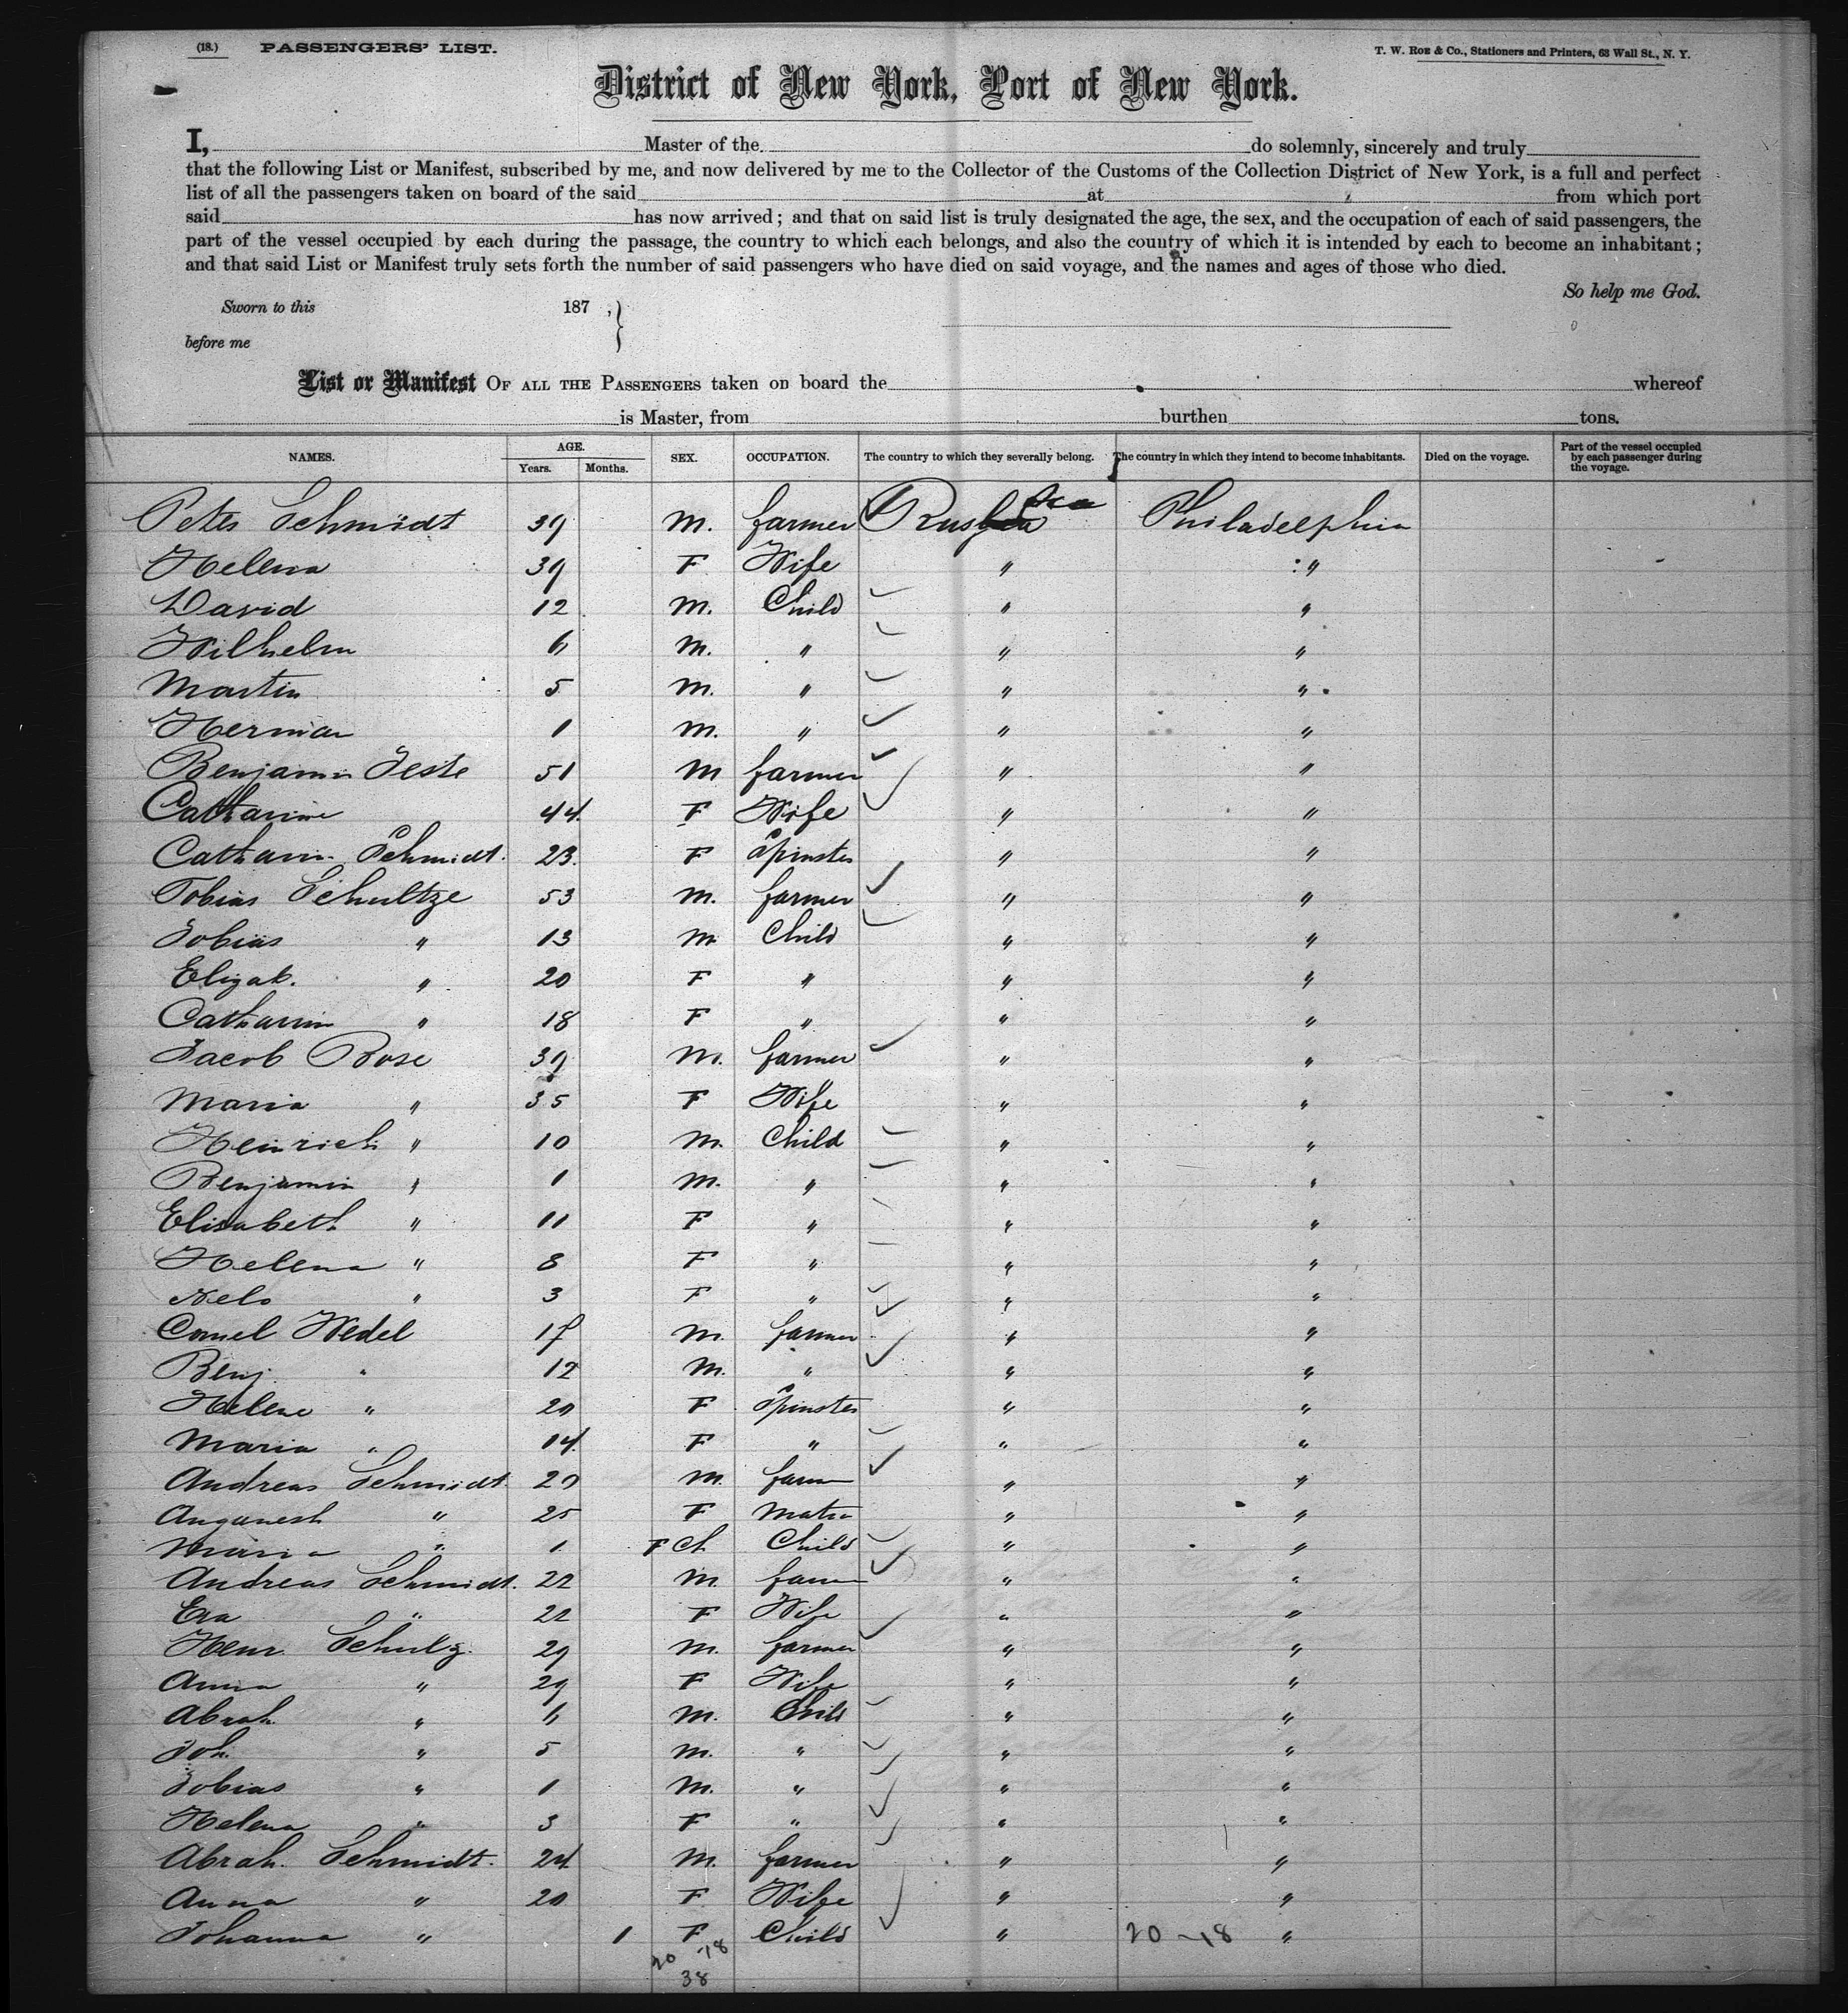 (18.) PASSENGERS' LIST. T. W. ROE & Co., Stationers and Printers, 63 Wall St., N. Y.
District of New York, Port of New York.
I, Master of the do solemnly, sincerely and truly
that the following List or Manifest, subscribed by me, and now delivered by me to the Collector of the Customs of the Collection District of New York, is a full and perfect
list of all the passengers taken on board of the said at from which port
said has now arrived; and that on said list is truly designated the age, the sex, and the occupation of each of said passengers, the
part of the vessel occupied by each during the passage, the country to which each belongs, and also the country of which it is intended by each to become an inhabitant;
and that said List or Manifest truly sets forth the number of said passengers who have died on said voyage, and the names and ages of those who died.
So help me God.
Sworn to this 187 ,
before me
List or Manifest OF ALL THE PASSENGERS taken on board the whereof
is Master, from burthen tons.
NAMES. AGE. Years. Months. SEX. OCCUPATION. The country to which they severally belong. The country in which they intend to become inhabitants. Died on the voyage. Part of the vessel occupied by each passenger during the voyage.
Peter Schmidt 39 M. farmer Russia Philadelphia
Helena 39 F Wife " "
David 12 M. Child " "
Wilhelm 6 M. " " "
Martin 5 M. " " "
Herman 1 M. " " "
Benjamin Jeste 51 M farmer " "
Catharine 44 F Wife " "
Catharin Schmidt. 23. F Spinster " "
Tobias Schultze 53 M. farmer " "
Tobias " 13 M Child " "
Elizab. " 20 F " " "
Catharin " 18 F " " "
Jacob Bose 39 M. farmer " "
Maria " 35 F Wife " "
Heinrich " 10 M. Child " "
Benjamin " 1 M. " " "
Elisabeth " 11 F " " "
Helena " 8 F " " "
Nelo " 3 F " " "
Cornel Wedel 17 M. farmer " "
Benj. " 12 M. " " "
Helene " 20 F Spinster " "
Maria " 14 F " " "
Andreas Schmidt. 29 M. farm " "
Anganesh " 25 F Matro " "
Maria " 1 F Ch Child " "
Andreas Schmidt. 22 M. farm " "
Eva " 22 F Wife " "
Henr. Schultz. 29 M. farmer " "
Anna " 29 F Wife " "
Abrah. " 6 M. Child " "
Joh. " 5 M. " " "
Tobias " 1 M. " " "
Helena " 3 F " " "
Abrah. Schmidt. 24 M. farmer " "
Anna " 20 F Wife " "
Johanna " 1 F Child " 20 - 18 "
20 - 18
38